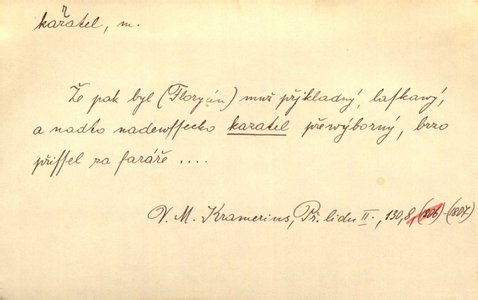 kařatel, m.
Že pak byl (Floryán) muž přjkladný, laskawý,
a nadto nadewssecko kazatel přewýborný, brzo
přissel za faráře ....
V. M. Kramerius, Př. lidu II., 130,8, (1807.)